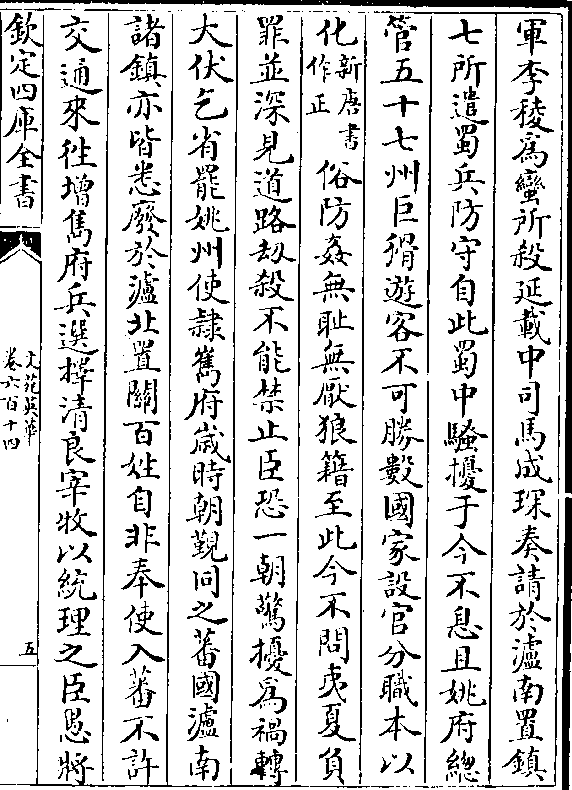 軍李稜爲蠻所殺延載中司馬成琛奏請於瀘南置鎮
七所遣蜀兵防守自此蜀中騷擾于今不息且姚府總
管五十七州巨猾遊客不可勝數國家設官分職本以
化新唐書作正俗防姦無恥無厭狼籍至此今不問夷夏負
罪並深見道路刼殺不能禁止臣恐一朝驚擾爲禍轉
大伏乞省罷姚州使隷嶲府歲時朝覲同之蕃國瀘南
諸鎮亦皆悉廢於瀘北置關百姓自非奉使入蕃不許
交通來往增嶲府兵選擇清良宰牧以統理之臣愚將
欽定四庫全書
文苑英華
卷六百十四
五